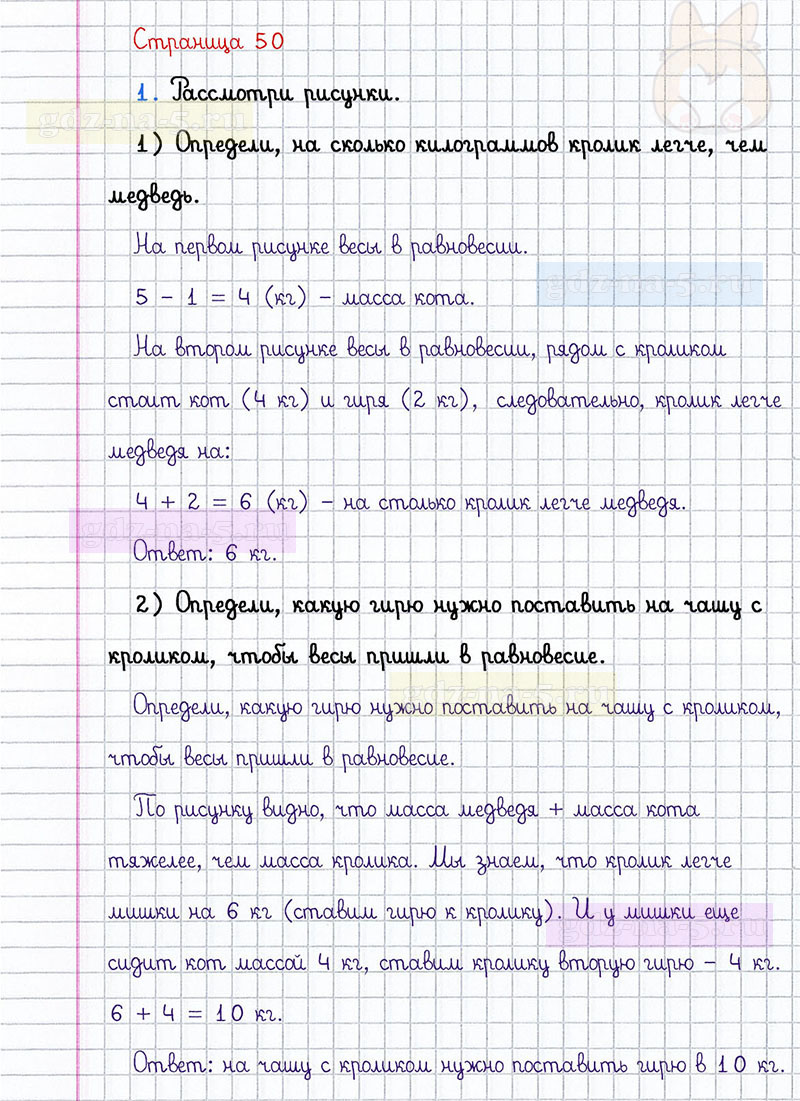 Страница 50
1. Рассмотри рисунки.
gdz-na-5.ru
1) Определи, на сколько килограммов кролик легче, чем
медведь.
На первом рисунке весы в равновесии.
gdz-na-5.ru
5 - 1 = 4 (кг) - масса кота.
На втором рисунке весы в равновесии, рядом с кроликом
стоит кот (4 кг) и гиря (2 кг), следовательно, кролик легче
медведя на:
4 + 2 = 6 (кг) - на столько кролик легче медведя.
gdz-na-5.ru
Ответ: 6 кг.
2) Определи, какую гирю нужно поставить на чашу с
кроликом, чтобы весы пришли в равновесие.
gdz-na-5.ru
Определи, какую гирю нужно поставить на чашу с кроликом,
чтобы весы пришли в равновесие.
По рисунку видно, что масса медведя + масса кота
тяжелее, чем масса кролика. Мы знаем, что кролик легче
мишки на 6 кг (ставим гирю к кролику). И у мишки еще
gdz-na-5.ru
сидит кот массой 4 кг, ставим кролику вторую гирю - 4 кг.
6 + 4 = 10 кг.
Ответ: на чашу с кроликом нужно поставить гирю в 10 кг.